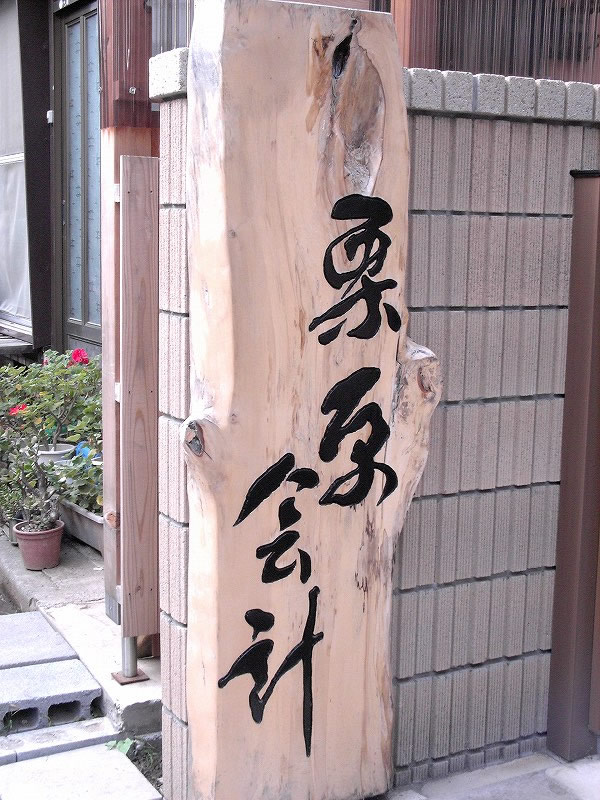 栗原
会計